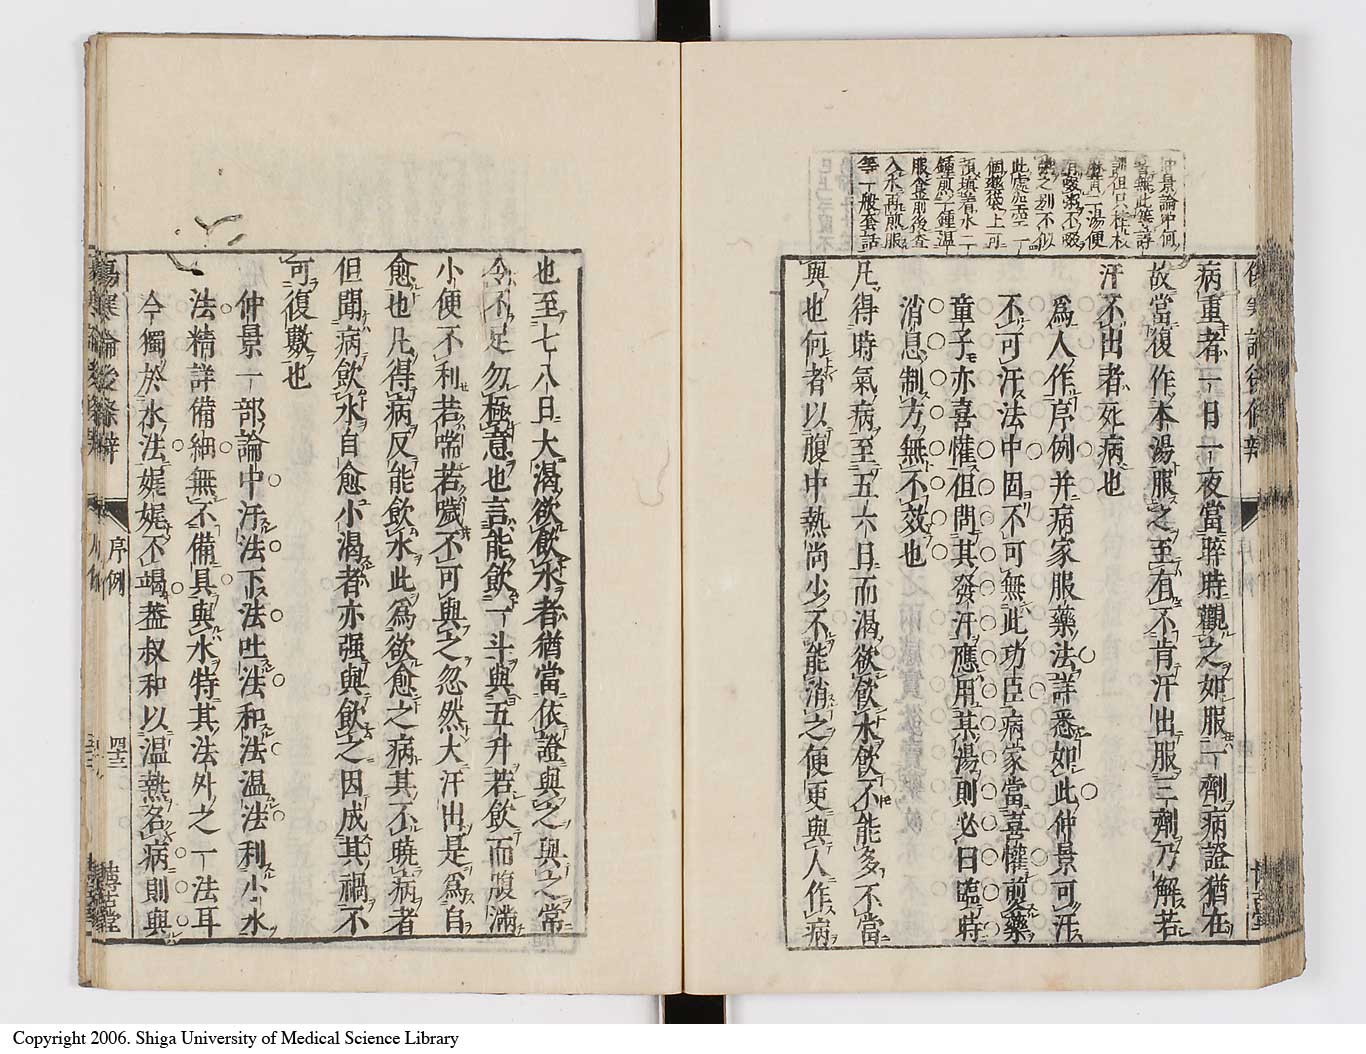 仲景論中何
者無此等語
但只桂枝
麻黃二湯便
有啜粥不啜
粥之別不似
此處空空一
個藥袋上可
預填著水一
鍾煎一鍾溫
服食前後查
入水再煎服
等一般套話
傷寒論後條辨
病重者一日一夜當晬時觀之如服一劑病證猶在
故當復作本湯服之至有不肯汗出服三劑乃解若
汗不出者死病也
爲人作序例并病家服藥法詳悉如此仲景可汗
不可汗法中固不可無此功臣病家當喜懽煎藥
童子亦喜懽但問其發汗應用某湯則必曰臨時
消息制方無不效也
凡得時氣病至五六日而渴欲飲水飲不能多不當
與也何者以腹中熱尚少不能消之便更與人作病
也至七八日大渴欲飲水者猶當依證與之與之常
令不足勿極意也言能飲一斗與五升若飲而腹滿
小便不利若喘若噦不可與之忽然大汗出是爲自
愈也凡得病反能飲水此爲欲愈之病其不曉病者
但聞病飲水自愈小渴者亦强與飲之因成其禍不
可復數也
仲景一部論中汗法下法吐法和法溫法利小水
法精詳備細無不備具與水特其法外之一法耳
今獨於水法娓娓不竭葢叔和以溫熱名病則與
傷寒論後條辨
序例
四三
博古堂
Copyright 2006. Shiga University of Medical Science Library